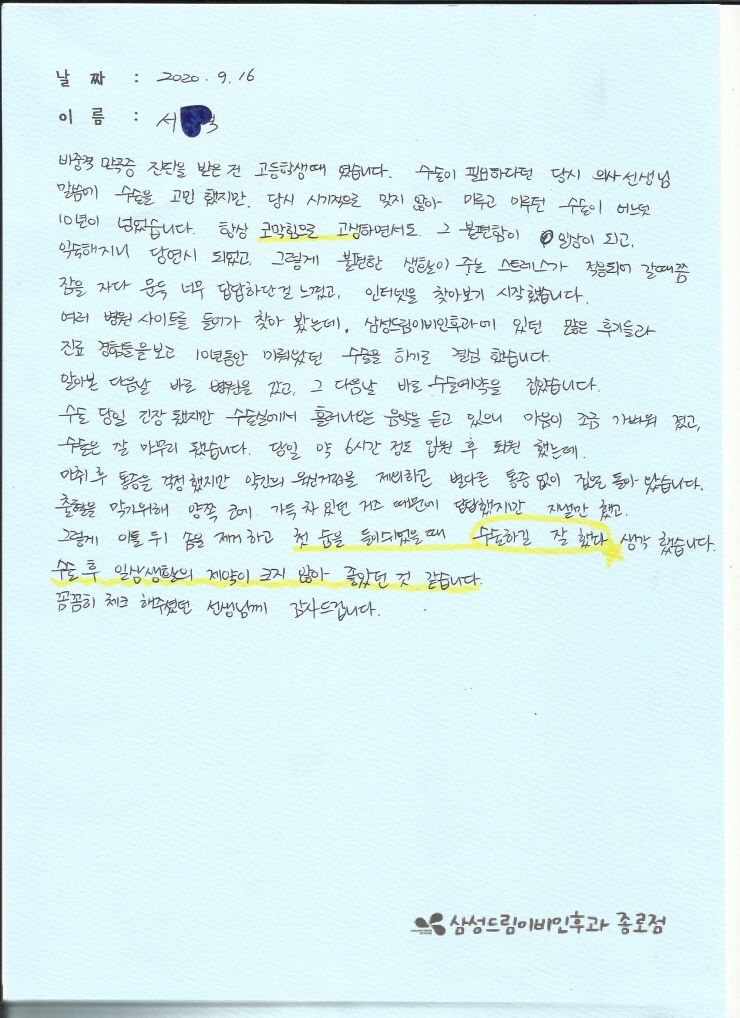 날 짜 : 2020. 9. 16
이 름 : 서
비중격 만곡증 진단을 받은 건 고등학생때 였습니다. 수술이 필요하다던 당시 의사선생님
말씀에 수술을 고민 했지만, 당시 시기적으로 맞지 않아 미루고 미루던 수술이 어느덧
10년이 넘었습니다. 항상 코막힘으로 고생하면서도 그 불편함이 일상이 되고,
익숙해지니 당연시 되었고, 그렇게 불편한 생활이 주는 스트레스가 적응되어 갈때쯤
잠을 자다 문득 너무 답답하단걸 느꼈고, 인터넷을 찾아보기 시작했습니다.
여러 병원 사이트를 들어가 찾아 봤는데, 삼성드림이비인후과에 있던 많은 후기들과
진료 경험들을보고 10년동안 미뤄왔던 수술을 하기로 결심 했습니다.
알아본 다음날 바로 병원을 갔고, 그 다음날 바로 수술예약을 잡았습니다.
수술 당일 긴장 됐지만 수술실에서 흘러나오는 음악을 듣고 있으니 마음이 조금 가벼워 졌고,
수술은 잘 마무리 됐습니다. 당일 약 6시간 정도 입원 후 퇴원 했는데,
마취 후 통증을 걱정했지만 약간의 욱신거림을 제외하고 별다른 통증 없이 집으로 돌아 왔습니다.
출혈을 막기위해 양쪽 코에 가득 차 있던 거즈 때문에 답답했지만 지낼만 했고,
그렇게 이틀 뒤 솜을 제거 하고 첫 숨을 들이쉬었을때 수술하길 잘 했다 생각 했습니다.
수술 후 일상생활의 제약이 크지 않아 좋았던 것 같습니다.
꼼꼼히 체크 해주셨던 선생님께 감사드립니다.
삼성드림이비인후과 종로점